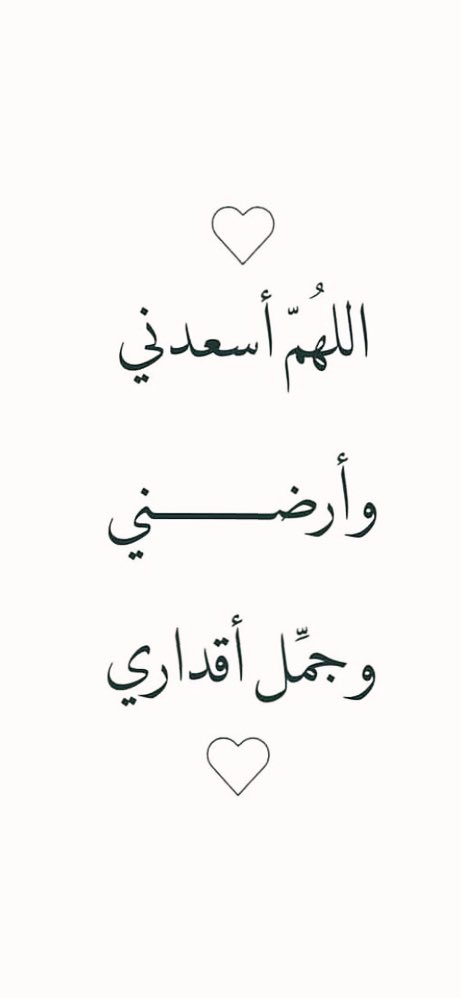 اللهُمّ أسعدني
وأرضـــــــني
وجمِّل أقداري